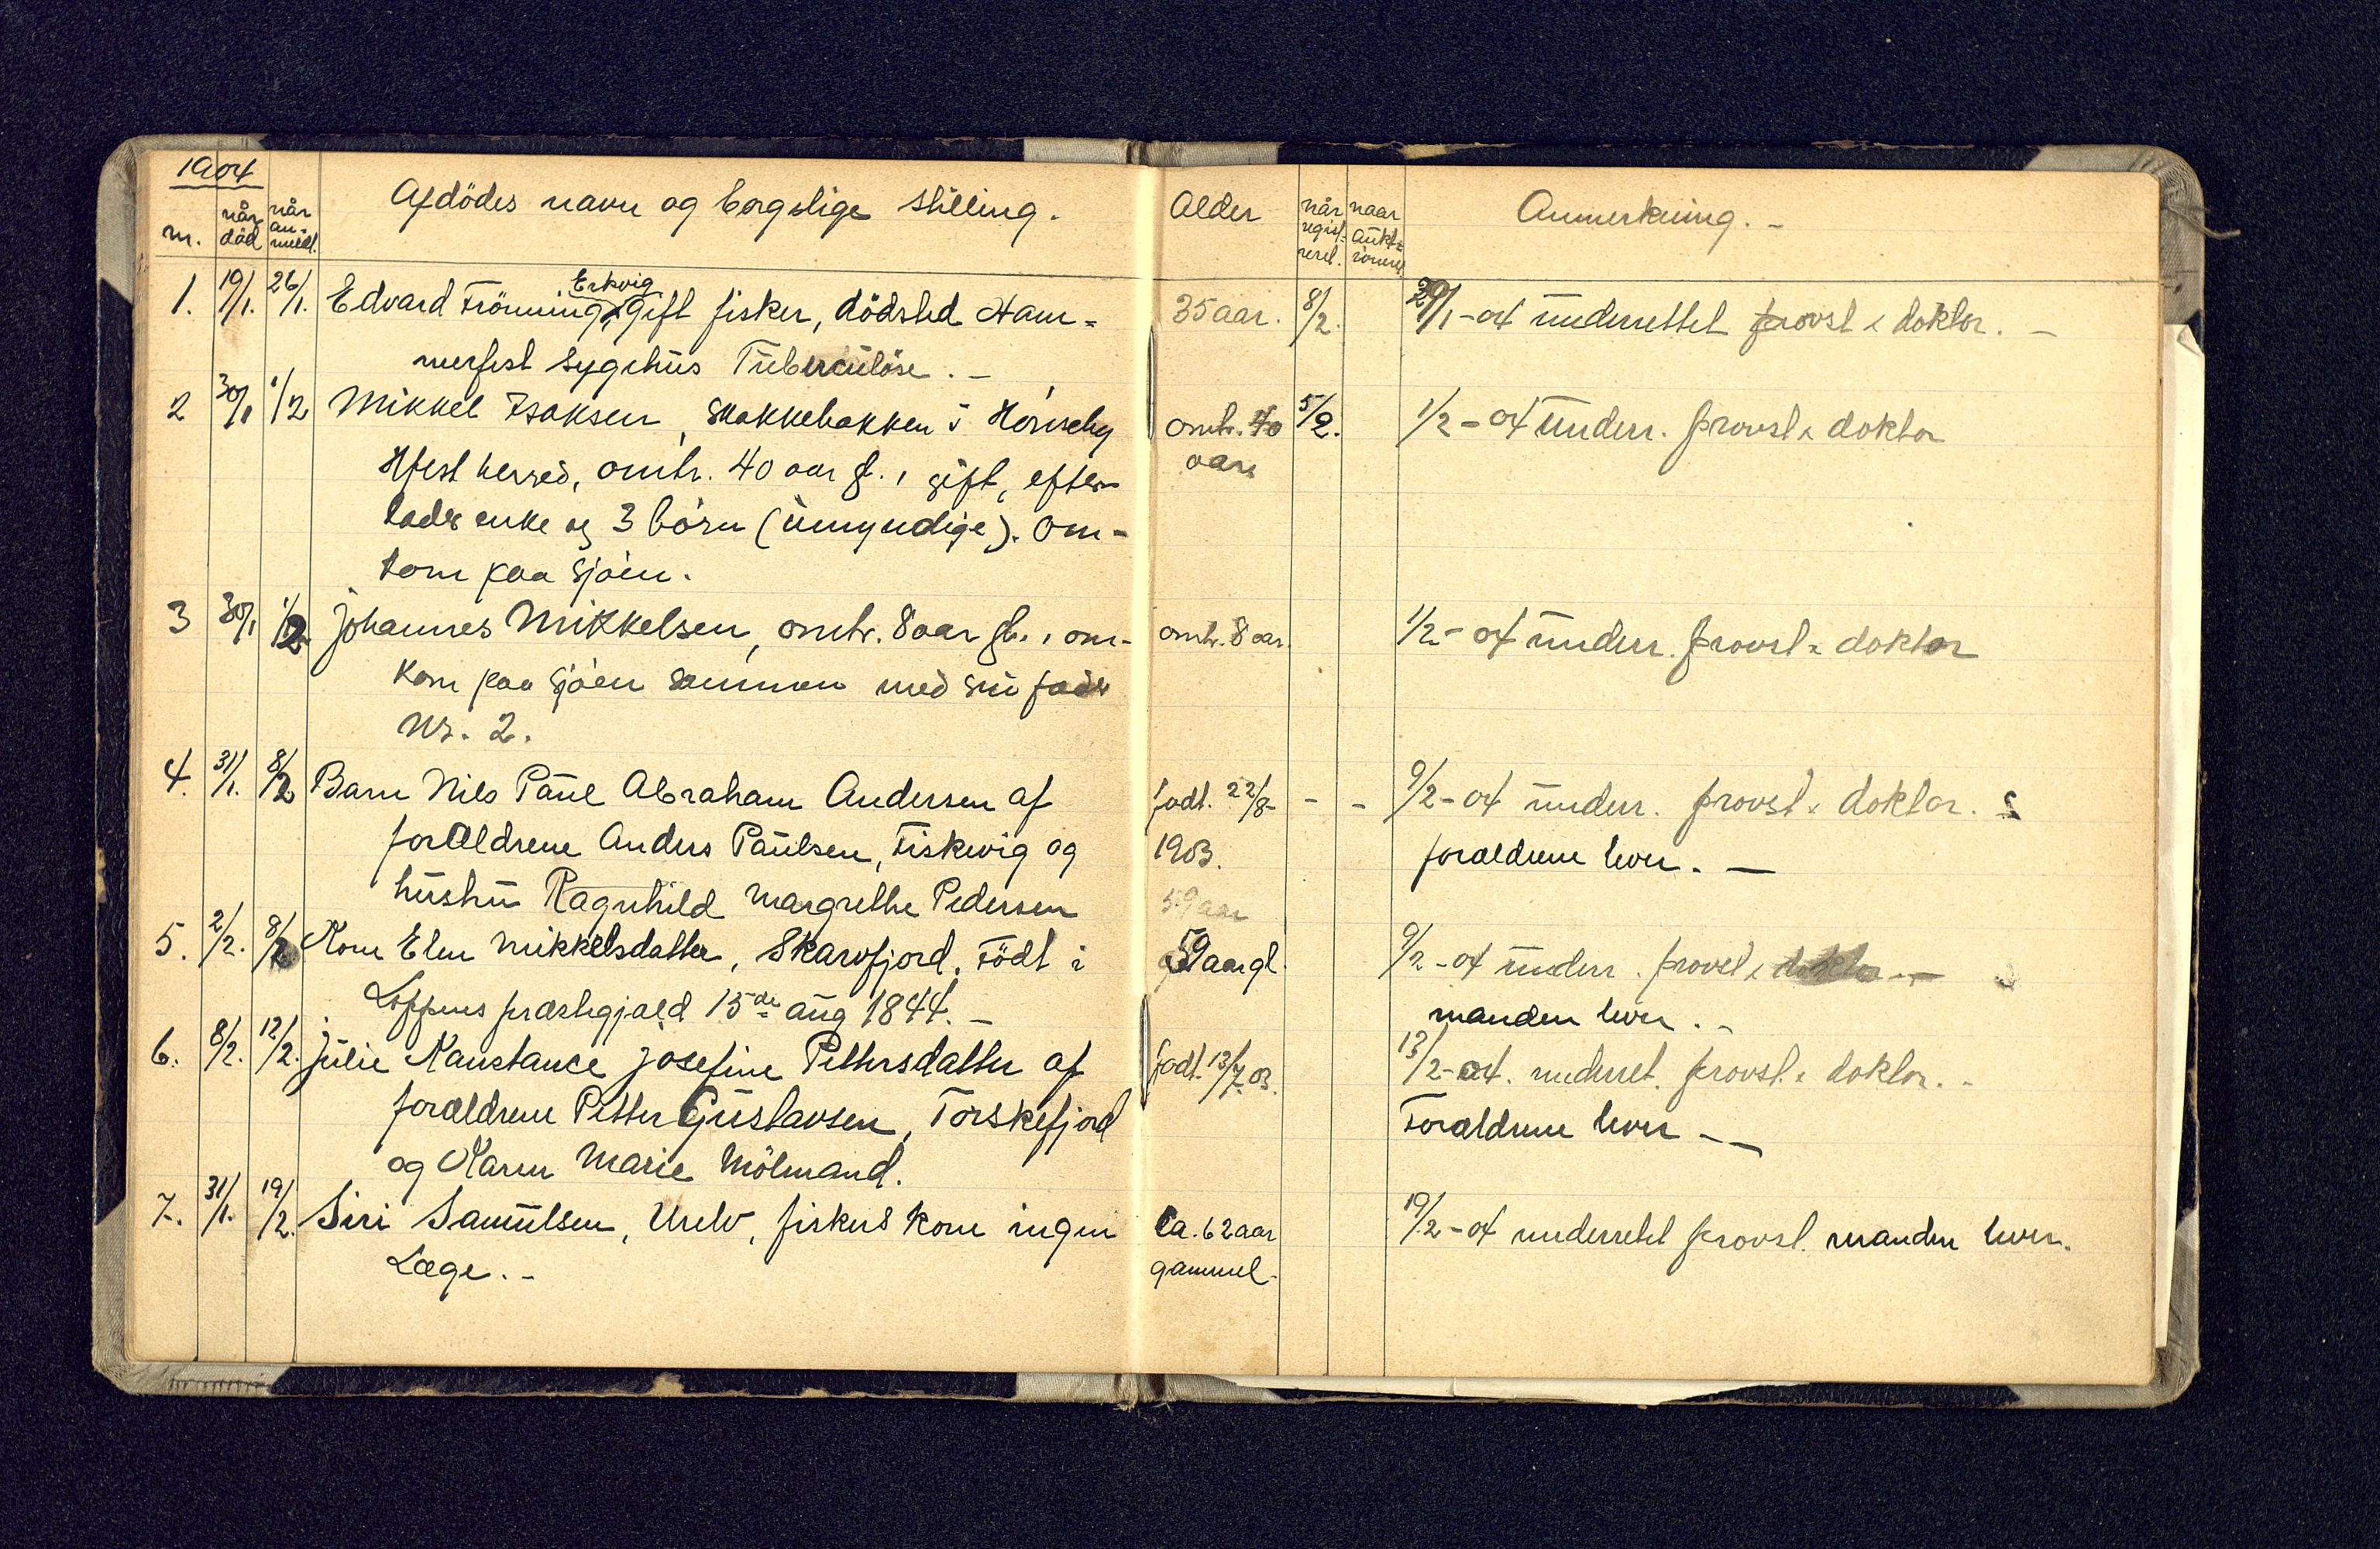 1904
nr.
når död
når an-meldt.
Afdödes navn og borgelige stilling.
Alder
når regist-reret.
naar aukt-ioneret.
Anmerkning. -
1. 19/1. 26/1. Edvard Frönning, Erkvig gift fisker, dödsted Ham-
merfest sygehus Tuberculöse. -
35 aar. 8/2. 29/1-04 underrettet provst & doktor. -
2 30/1 1/2 Mikkel Isaksen, Skakkebakken i Hönseby
Hfest herred, omtr. 40 aar gl., gift, efter-
lader enke og 3 börn (umyndige). Om-
kom paa sjöen.
omtr. 40 aar 5/2. 1/2-04 underr. provst & doktor
3 30/1 1/2 Johannes Mikkelsen, omtr. 8 aar gl., om-
kom paa sjöen sammen med sin fader
Nr. 2.
omtr. 8 aar. 1/2-04 underr. provst & doktor
4. 31/1. 8/2 Barn Nils Paul Abraham Andersen af
forældrene Anders Paulsen, Fiskevig og
hustru Ragnhild Margrethe Pedersen
født. 22/8- 1903. - - 9/2-04 underr. provst & doktor.
forældrene lever. -
59 aar
5. 2/2. 8/2 Kone Elen Mikkelsdatter, Skarvfjord, Født i
Loppens præstegjæld 15de aug 1844. -
59 aar gl. 9/2-04 underr. provst & doktor -
manden lever. -
6. 8/2. 12/2. Julie Konstance Josefine Pettersdatter af
forældrene Petter Gustavsen, Torskefjord
og Karen Marie Mölmand.
født. 13/7 03. 13/2-04. underret. provst & doktor. -
Forældrene lever -
7. 31/1. 19/2. Siri Samulsen, Urelv, fiskers kone ingen
Læge. -
Ca. 62 aar
gammel- 19/2-04 underrettet provst. manden lever.